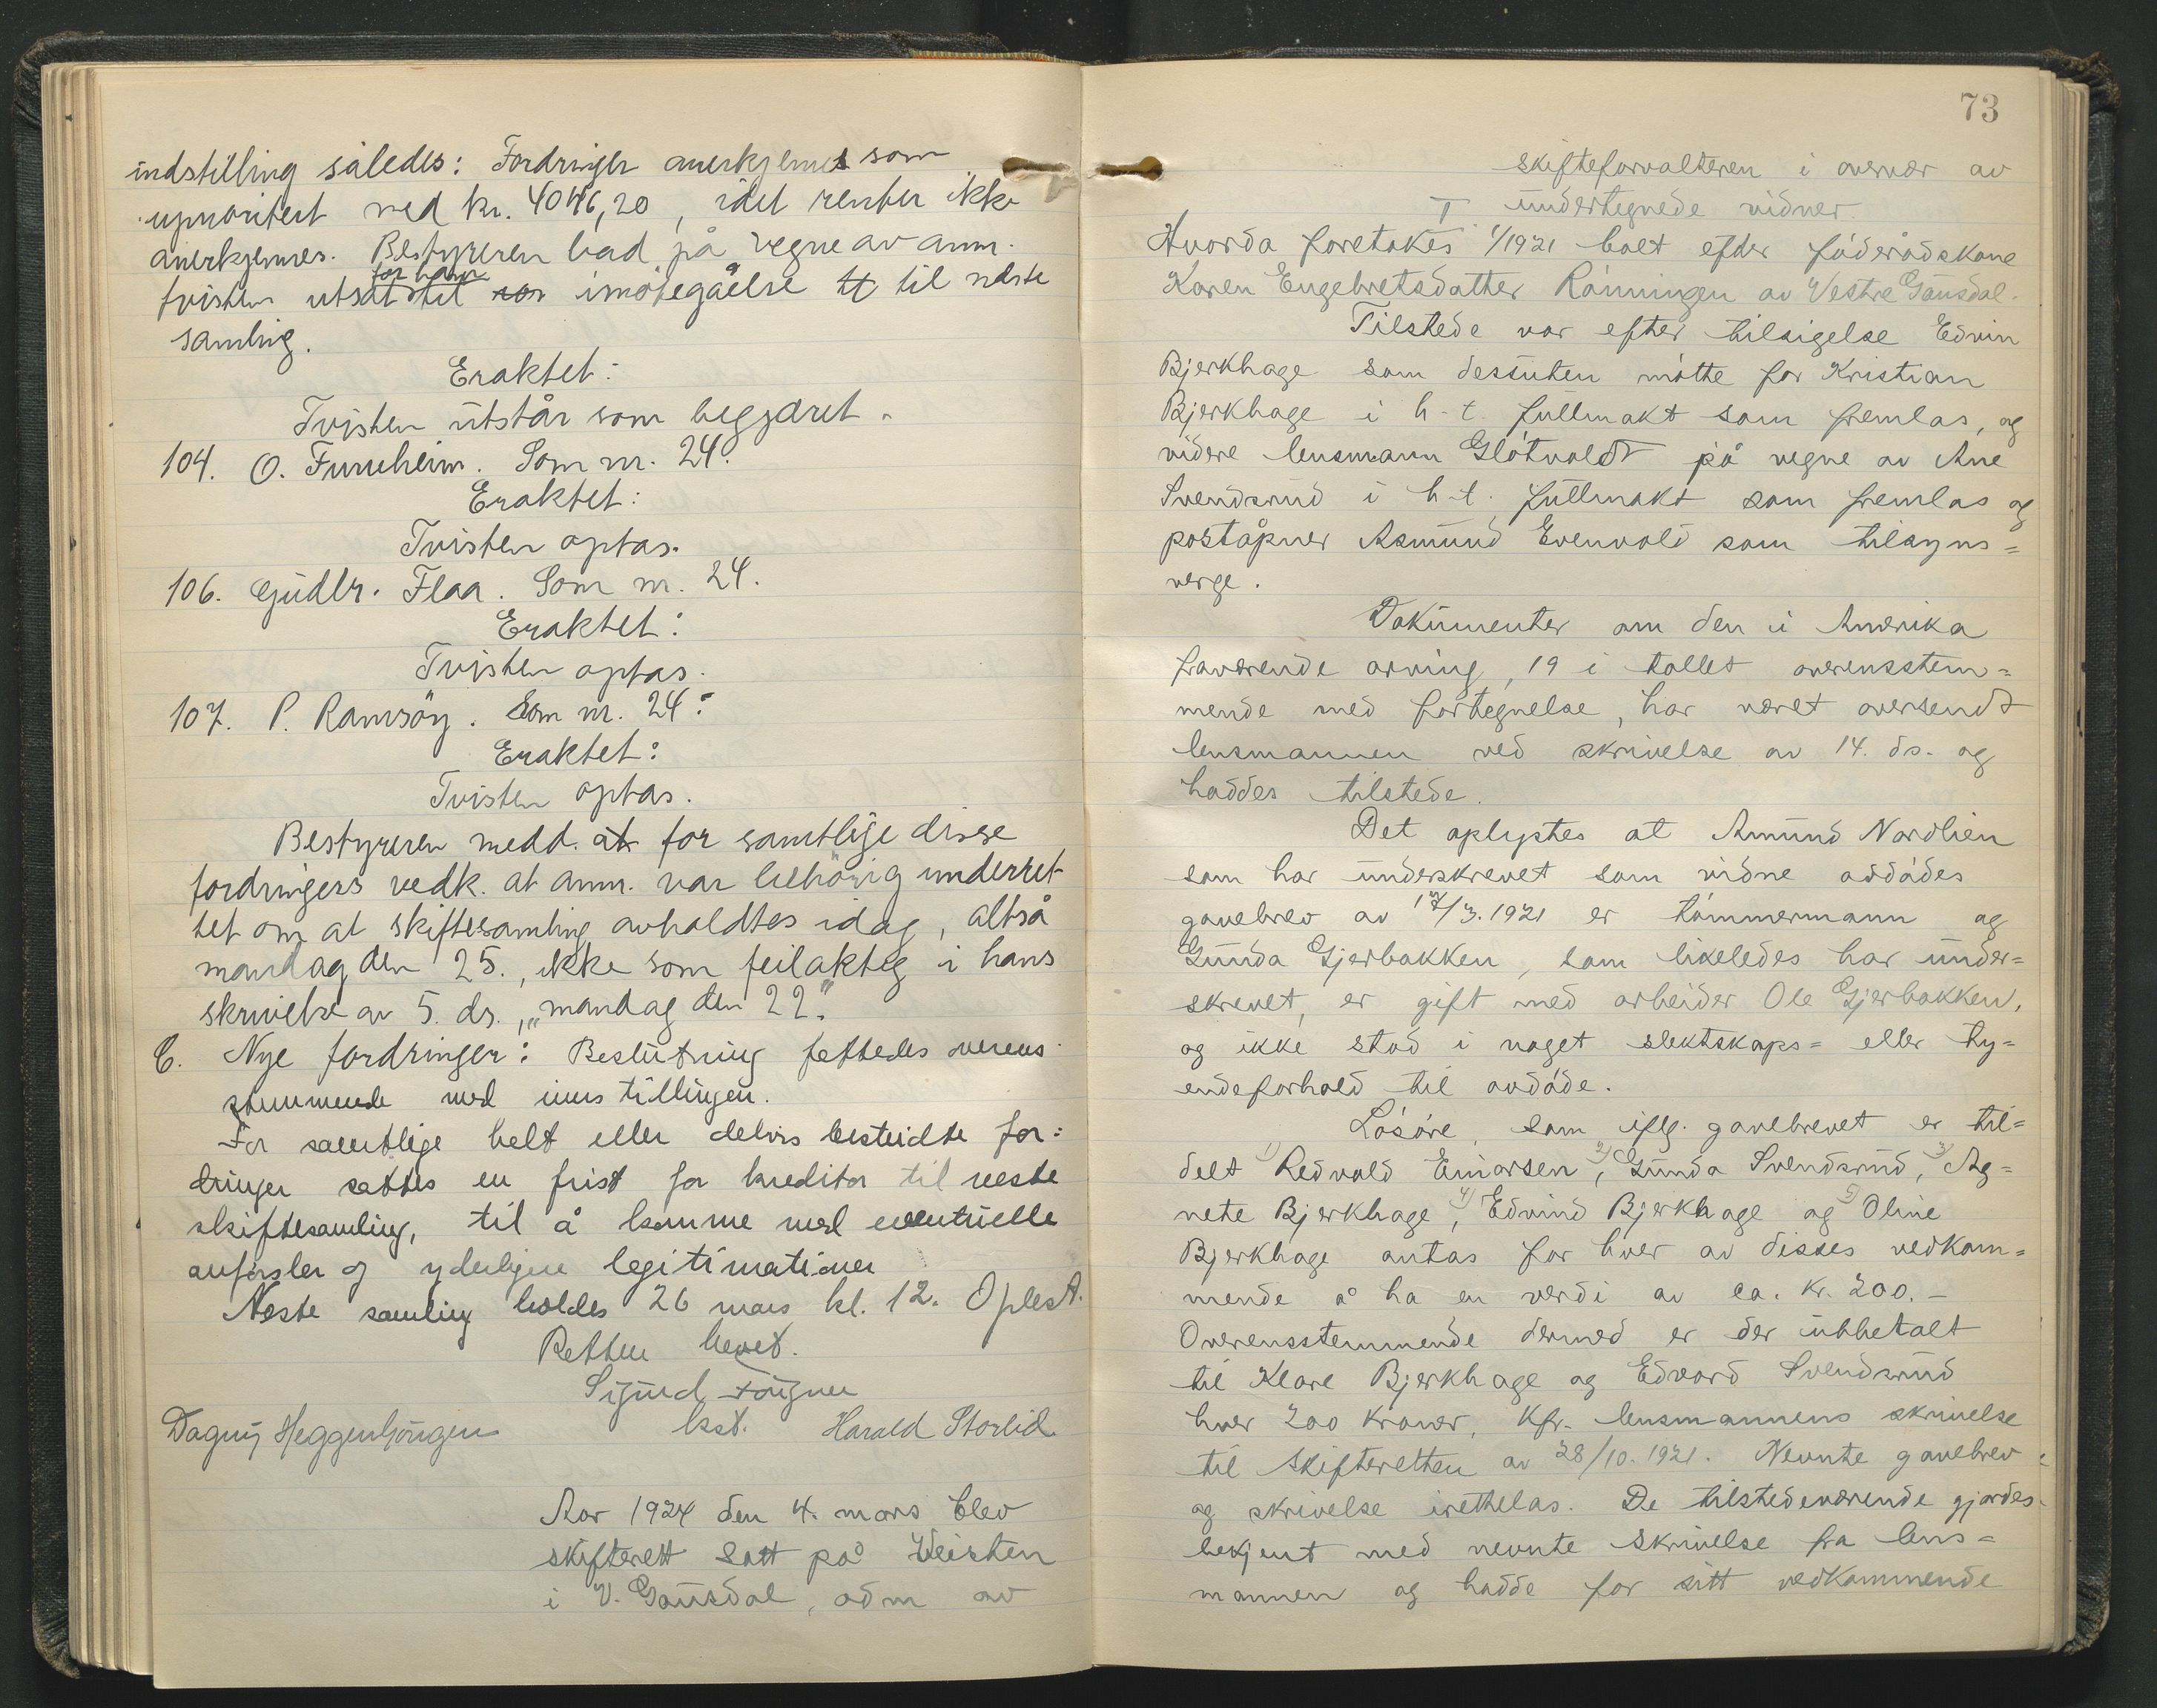 indstilling således: Fordringen anerkjennes som
uprioritert med kr. 4046,20, idet renter ikke
anerkjennes. Bestyreren bad på vegne av anm.
for ham
tvisten utsat til imøtegåelse til næste
samling.
Eraktet:
Tvisten utstår som begjæret.
104. O. Furuheim. Som nr. 24.
Eraktet:
Tvisten optas.
106. Gudbr. Flaa. Som nr. 24.
Eraktet:
Tvisten optas.
107. P. Ramsöy. Som nr. 24:
Eraktet:
Tvisten optas.
Bestyreren medd. at for samtlige disse
fordringers vedk. at anm. var behörig underret-
tet om at skiftesamling avholdtes idag, altså
mandag den 25., ikke som feilaktig i hans
skrivelse av 5. ds., "mandag den 22."
C. Nye fordringer: Beslutning fattedes overens-
stemmende med innstillingen.
For samtlige helt eller delvis bestridte for=
dringer sattes en frist for kreditor til neste
skiftesamling, til å komme med eventuelle
anførsler og yderligere legitimationer
Neste samling holdes 26 mars kl. 12. Oplest.
Retten hevet.
Sigurd
kst. Harald Storlid.
Dagny Heggenhougen
Aar 1924 den 4. mars blev
skifterett satt på Veisten
i V. Gausdal, adm av
73
skifteforvalteren i overvær av
undertegnede vidner.
Hvorda foretokes 1/1921 boet efter föderådskone
Karen Engebretsdatter Rönningen av Vestre Gausdal.
Tilstede var efter tilsigelse Edvin
Bjerkhage som dessuten mötte for Kristian
Bjerkhage i h-t. fullmakt som fremlas, og
videre lensmann Glötvoldt på vegne av Ane
Svendsrud i h-t. fullmakt som fremlas og
poståpner Asmund Evenvold som tilsyns=
verge.
Dokumenter om den i Amerika
fraværende arving, 19 i tallet overensstem=
mende med fortegnelse, har været oversendt
lensmannen ved skrivelse av 14. ds. og
haddes tilstede.
Det oplystes at Amund Nordlien
som har underskrevet som vidne avdödes
gavebrev av 17/3. 1921 er tömmermann og
Gunda Gjerbakken, som likeledes har under=
skrevet, er gift med arbeider Ole Gjerbakken,
og ikke stod i noget slektskaps= eller ty=
endeforhold til avdöde.
Lösöre, som iflg. gavebrevet er til=
delt 1) Redvald Einarsen, 2) Gunda Svendsrud, 3) Ag=
nete Bjerkhage, 4) Edvind Bjerkhage og 5) Oline
Bjerkhage antas for hver av disses vedkom=
mende å ha en verdi av ca. kr. 200.-
Overensstemmende dermed er der utbetalt
til Klare Bjerkhage og Edvard Svendsrud
hver 200 kroner, kfr. lensmannens skrivelse
til skifteretten av 28/10. 1921. Nevnte gavebrev
og skrivelse irettelas. De tilstedeværende gjordes
bekjent med nevnte skrivelse fra lens=
mannen og hadde for sitt vedkommende